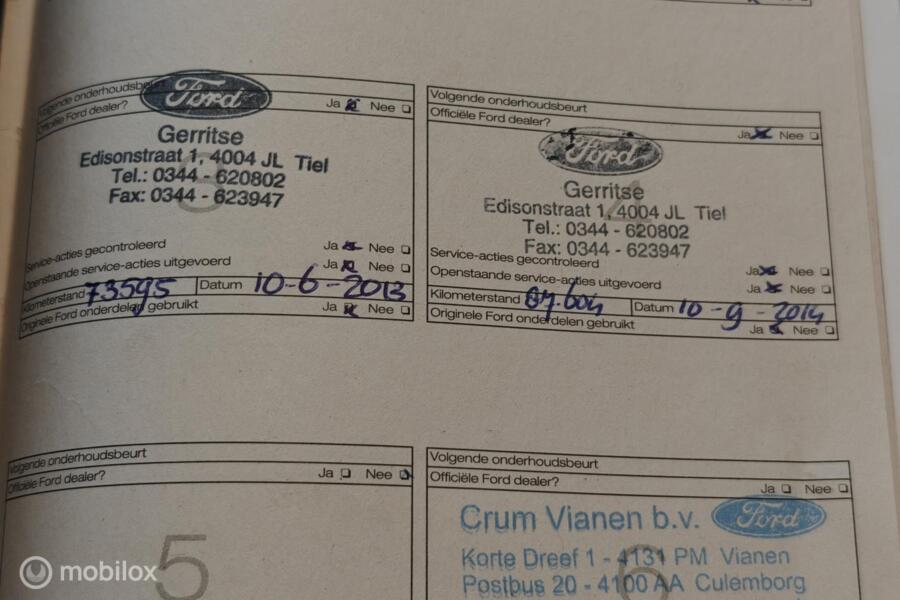 Volgende onderhoudsbeurt
Officiële Ford dealer? Ja Nee
Ford
Gerritse
Edisonstraat 1, 4004 JL Tiel
Tel.: 0344 - 620802
Fax: 0344 - 623947
3
Service-acties gecontroleerd Ja Nee
Openstaande service-acties uitgevoerd Ja Nee
Kilometerstand 73595 Datum 10-6-2013
Originele Ford onderdelen gebruikt Ja Nee
Volgende onderhoudsbeurt
Officiële Ford dealer? Ja Nee
Ford
Gerritse
Edisonstraat 1, 4004 JL Tiel
Tel.: 0344 - 620802
Fax: 0344 - 623947
4
Service-acties gecontroleerd Ja Nee
Openstaande service-acties uitgevoerd Ja Nee
Kilometerstand Datum 10-9-2014
Originele Ford onderdelen gebruikt Ja Nee
Volgende onderhoudsbeurt
Officiële Ford dealer? Ja Nee
5
Volgende onderhoudsbeurt
Officiële Ford dealer? Ja Nee
Crum Vianen b.v. Ford
Korte Dreef 1 - 4131 PM Vianen
Postbus 20 - 4100 AA Culemborg
6
mobilox